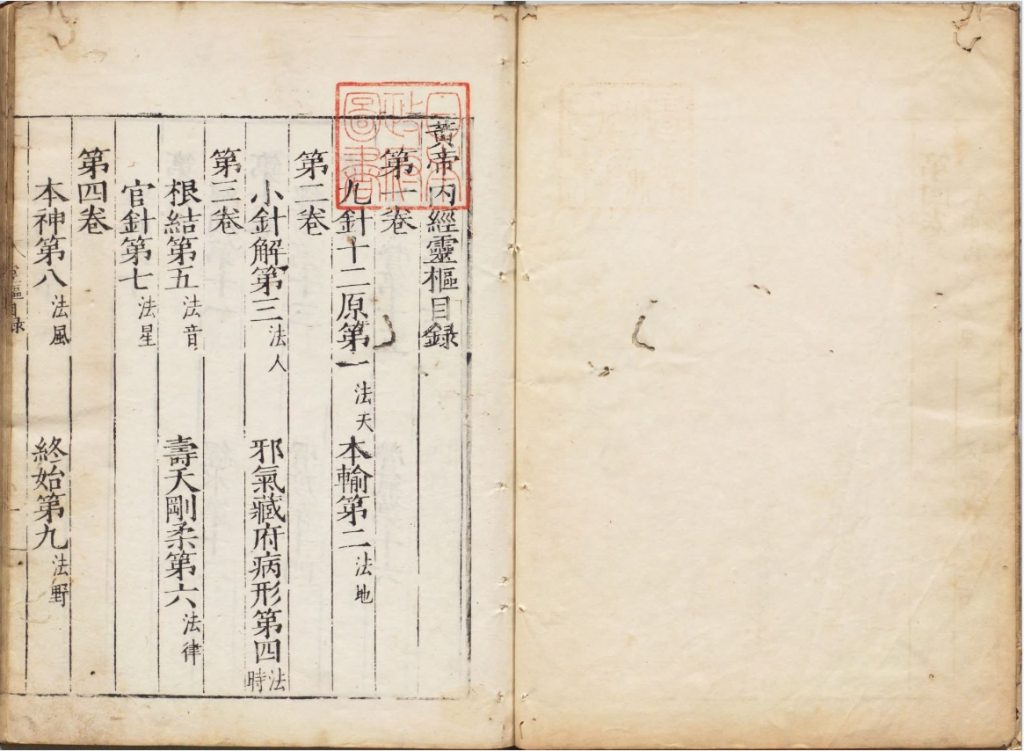 黃帝內經靈樞目錄
第一卷
九針十二原第一 法天 本輸第二 法地
第二卷
小針解第三 法人 邪氣藏府病形第四 法時
第三卷
根結第五 法音 壽夭剛柔第六 法律
官針第七 法星
第四卷
本神第八 法風 終始第九 法野
靈樞目錄